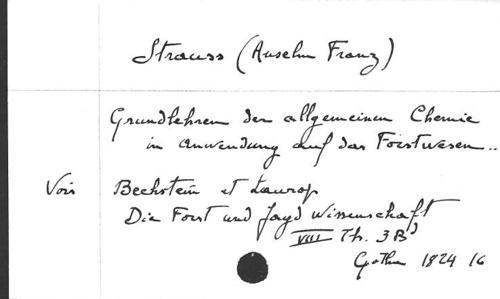 Strauss (Anselm Franz)
Grundlehren der allgemeinen Chemie
in Anwendung auf das Forstwesen..
Voir Bechstein et Laurop
Die Forst und Jagd Wissenschaft
VIII Th. 3 Bd
Gotha 1824 16